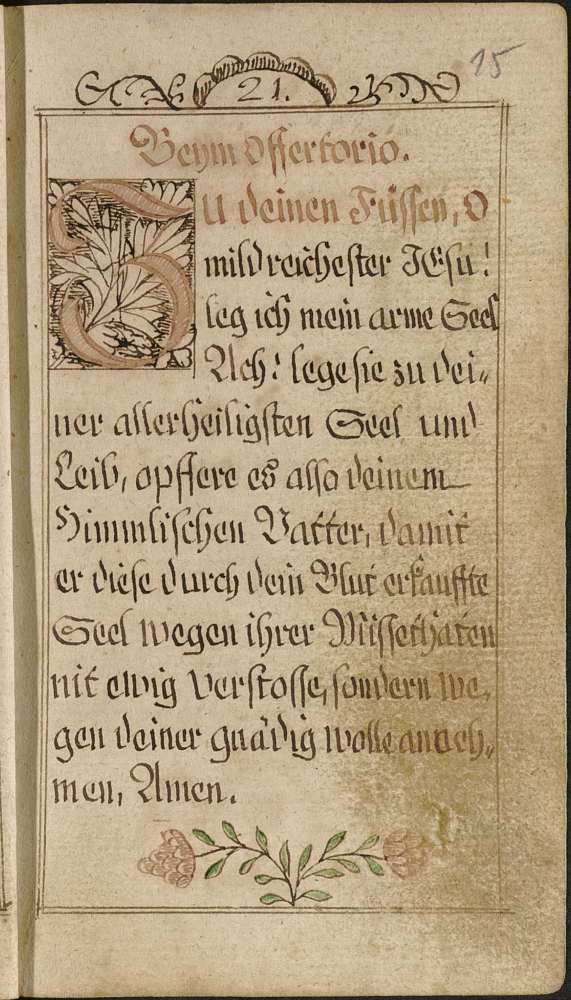 15
21.
Beÿm Offertorio.
ZU deinen Füssen, O
mildreichester JEsu!
leg ich mein arme Seel
Ach! lege sie zu dei„
ner allerheiligsten Seel und
Leib, opffere es also deinem
Himmlischen Vatter, damit
er diese durch dein Blut erkauffte
Seel wegen ihrer Missethaten
nit ewig verstosse, sondern we„
gen deiner gnädig wolle anneh„
men, Amen.